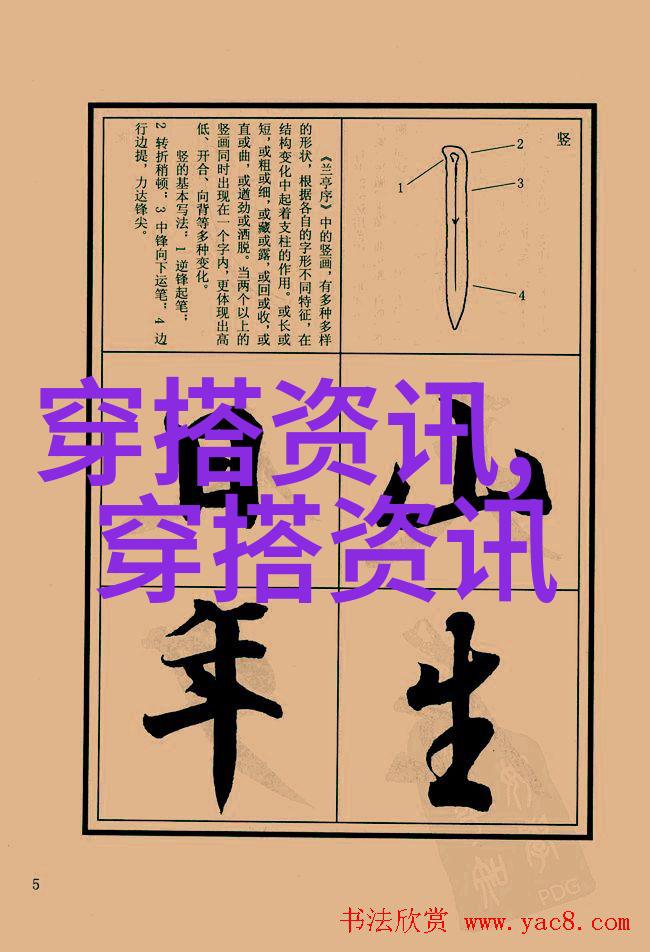 竖
1
2
3
4
《兰亭序》中的竖画，有多种多样
的形状，根据各自的字形不同特征，在
结构变化中起着支柱的作用。或长或
短，或粗或细，或藏或露，或回或收，或
直或曲，或遒劲或洒脱。当两个以上的
竖画同时出现在一个字内，更体现出高
低、开合、向背等多种变化。
竖的基本写法：1 逆锋起笔；
2 转折稍顿；3 中锋向下运笔；4 边
行边提，力达锋尖。
山
日
穿搭资讯，
穿搭资讯
生
年
5
PDG
书法欣赏 www.yac8.com